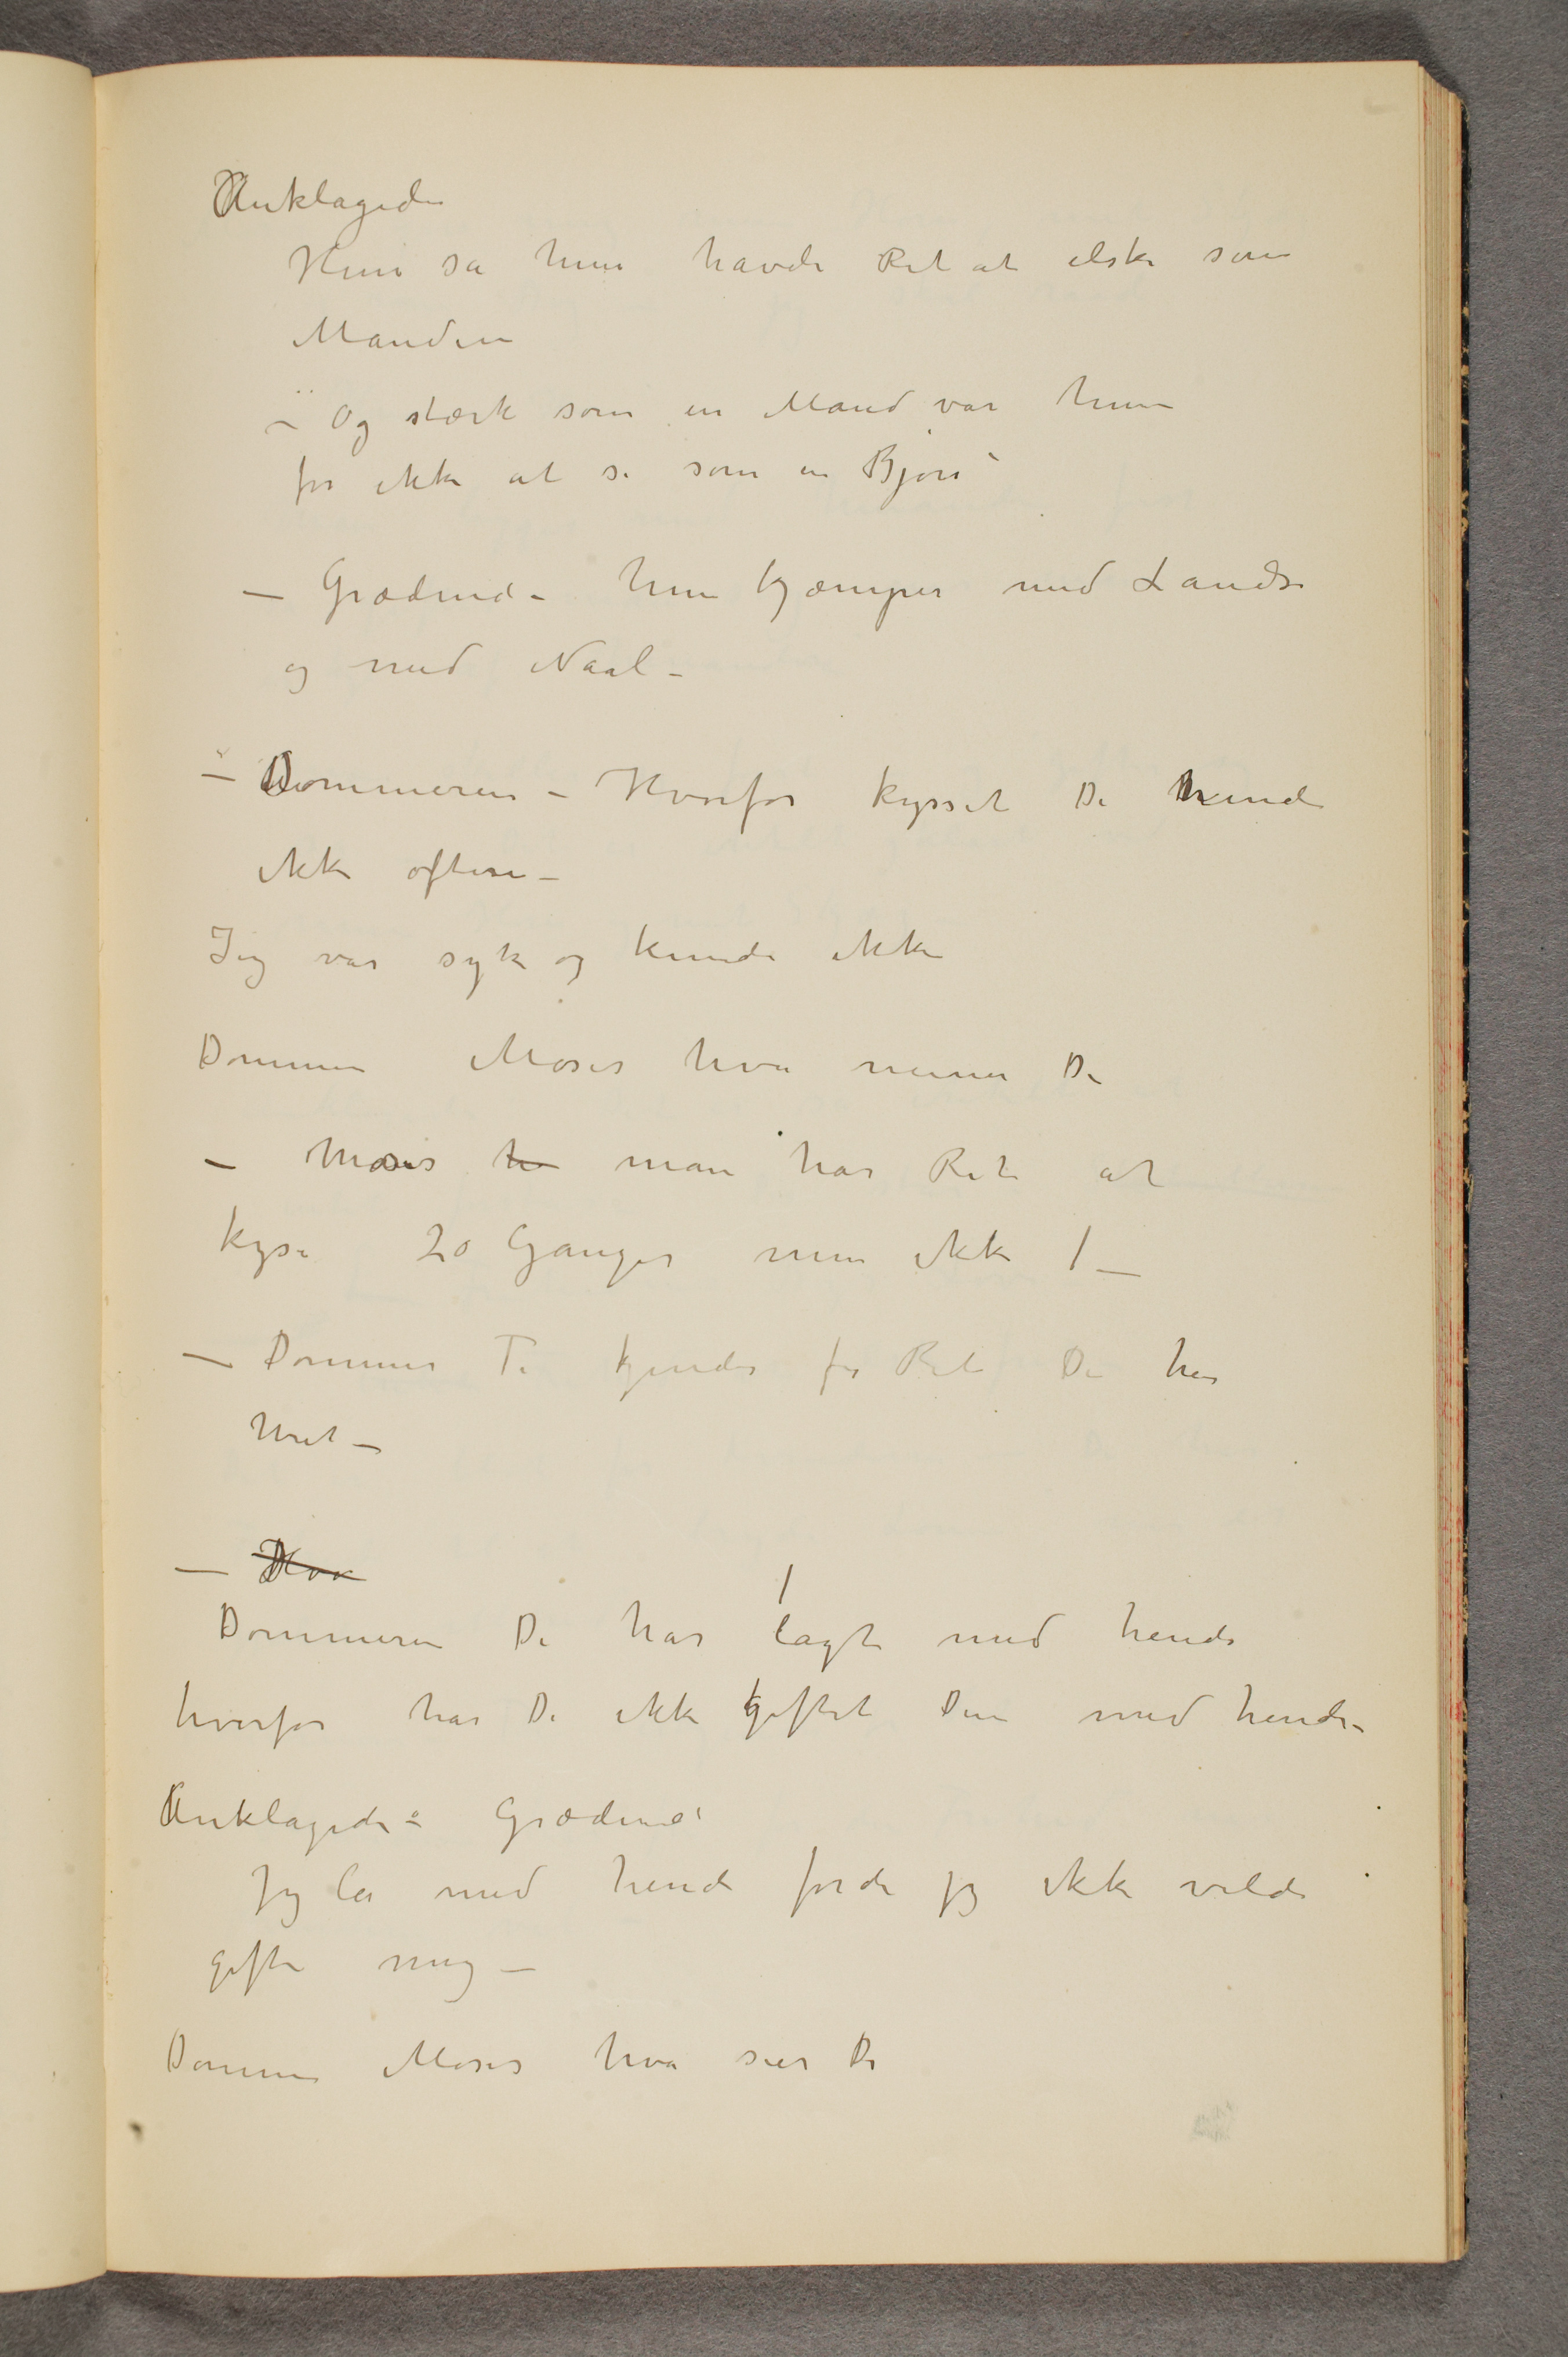 Anklagede
Hun sa hun havde Ret at elske som
Manden
– Og stærk som en Mand var hun
for ikke at se som en Bjørn
– Grædend – hun kjæmper med Landse
og med Naal –
– Dommeren – Hvorfor kysset De hende
ikke oftere –
Jeg var syk og kunde ikke
Dommer Moses hva mener De
– Moses h man har Ret at
kyse 20 Ganger men ikke 1 –
– Dommer Ti kjendes for Ret De har
Uret –
– Hva
Dommeren De har lagt med hende
hvorfor har De ikke giftet Dem med hende –
Anklagede – Grædend
Jeg la med hende fordi jeg ikke vilde
gifte mig –
Dommer Moses hva sier De